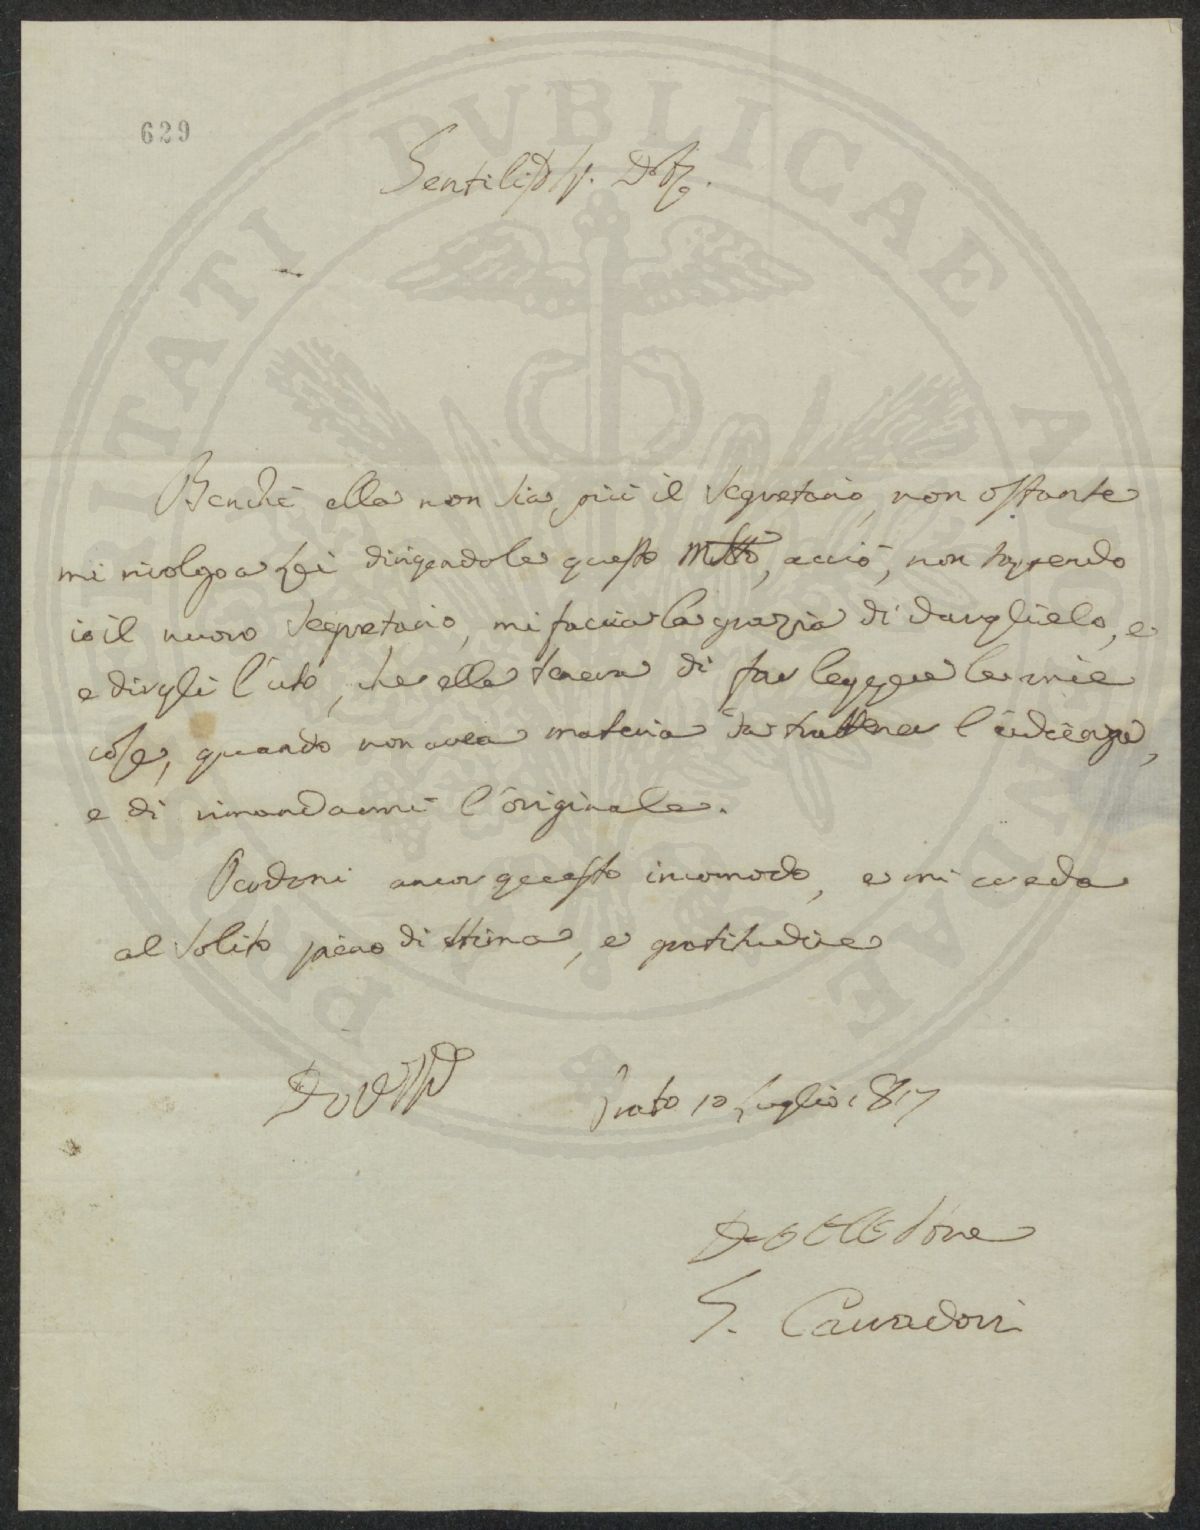 629
Gentiliss: Sig. Dott.
Benchè ella non sia più il Segretario, non ostante
mi rivolgo a Lei dirigendole questo Mstto, acciò, non sapendo
io il nuovo Segretario, mi faccia la grazia di darglielo, e
e dirgli l'uso, che ella teneva di far leggere le mie
cose, quando non avea materia da trattener l'udienza,
e di rimandarmi l'originale.
Perdoni ancor questo incomodo, e mi creda
al solito pieno di stima, e gratitudine
Prato 10 Luglio 1817
G. Carradori
PROSPERITATI PVBLICAE AVGENDAE